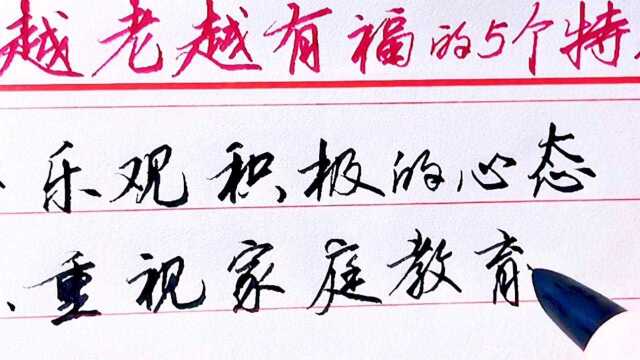 越老越有福的5个特
乐观积极的心态
重视家庭教育